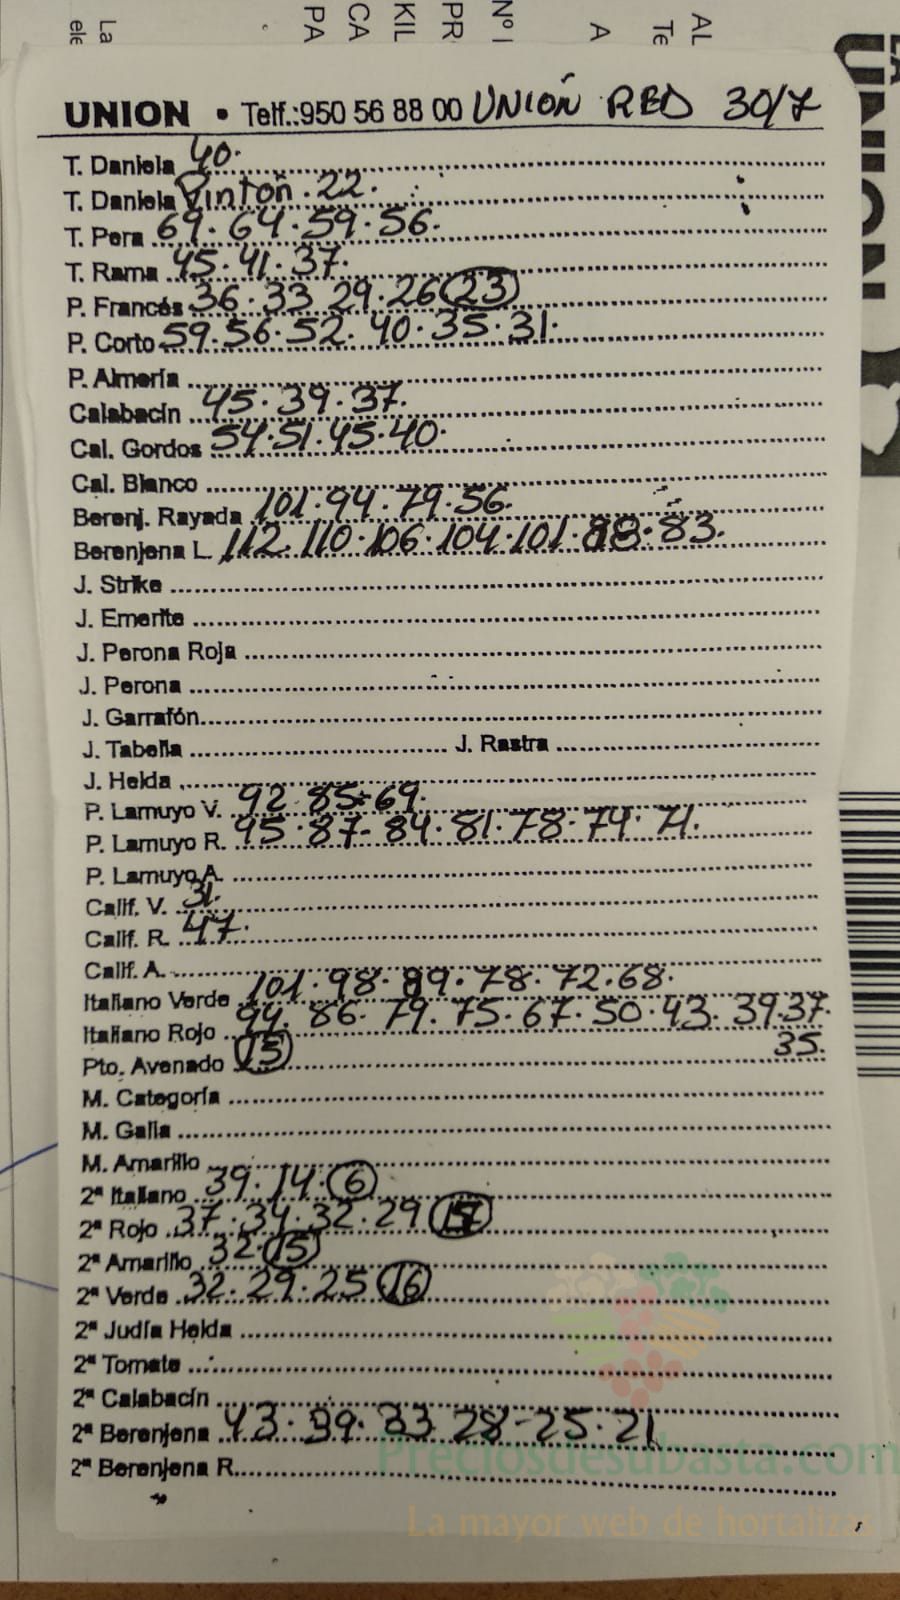 La
ele
PA
CA
KIL
PR
Nº
A
Te
AL
LA
UNION
UNION • Telf.:950 56 88 00 UNIÓN RED 30/7
T. Daniela 40.
T. Daniela Pintón . 22.
T. Pera 69. 64. 59. 56.
T. Rama 45. 41. 37.
P. Francés 36. 33 29. 26 23
P. Corto 59. 56. 52. 40. 35. 31.
P. Almería
Calabacín 45. 39. 37.
Cal. Gordos 54. 51. 45. 40.
Cal. Blanco
Berenj. Rayada 101. 94. 79. 56.
Berenjena L. 112. 110. 106. 104. 101. 88. 83.
J. Strike
J. Emerite
J. Perona Roja
J. Perona
J. Garrafón
J. Tabella J. Rastra
J. Helda
P. Lamuyo V. 92 85-69.
P. Lamuyo R. 95. 87- 84. 81. 78. 74. 71.
P. Lamuyo A.
Calif. V. 31.
Calif. R. 47.
Calif. A.
Italiano Verde 101. 98. 89. 78. 72. 68.
Italiano Rojo 94. 86. 79. 75. 67. 50. 43. 39. 37.
35.
Pto. Avenado 15
M. Categoría
M. Galia
M. Amarillo
2ª Italiano 39. 14. 6
2ª Rojo 37. 34. 32. 29
2ª Amarillo 32. 15
2ª Verde 32. 29. 25 16
2ª Judía Helda
2ª Tomate
2ª Calabacín
2ª Berenjena 43. 39. 33 28-25. 21
2ª Berenjena R.
Preciosdesubasta.com
La mayor web de hortalizas